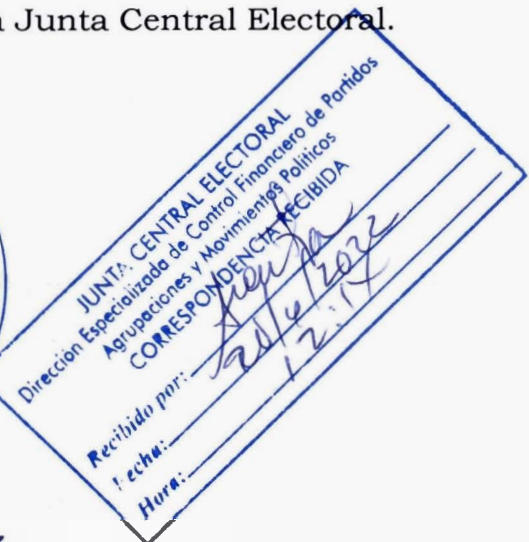 Junta Central Electoral.
JUNTA CENTRAL ELECTORAL
Dirección Especializada de Control Financiero de Partidos
Agrupaciones y Movimientos Políticos
CORRESPONDENCIA RECIBIDA
Recibido por:
Fecha: 20/4/2022
Hora: 12:17